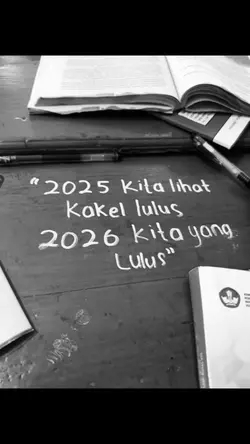 "2025 Kita lihat
Kakel lulus
2026 Kita yang
Lulus"